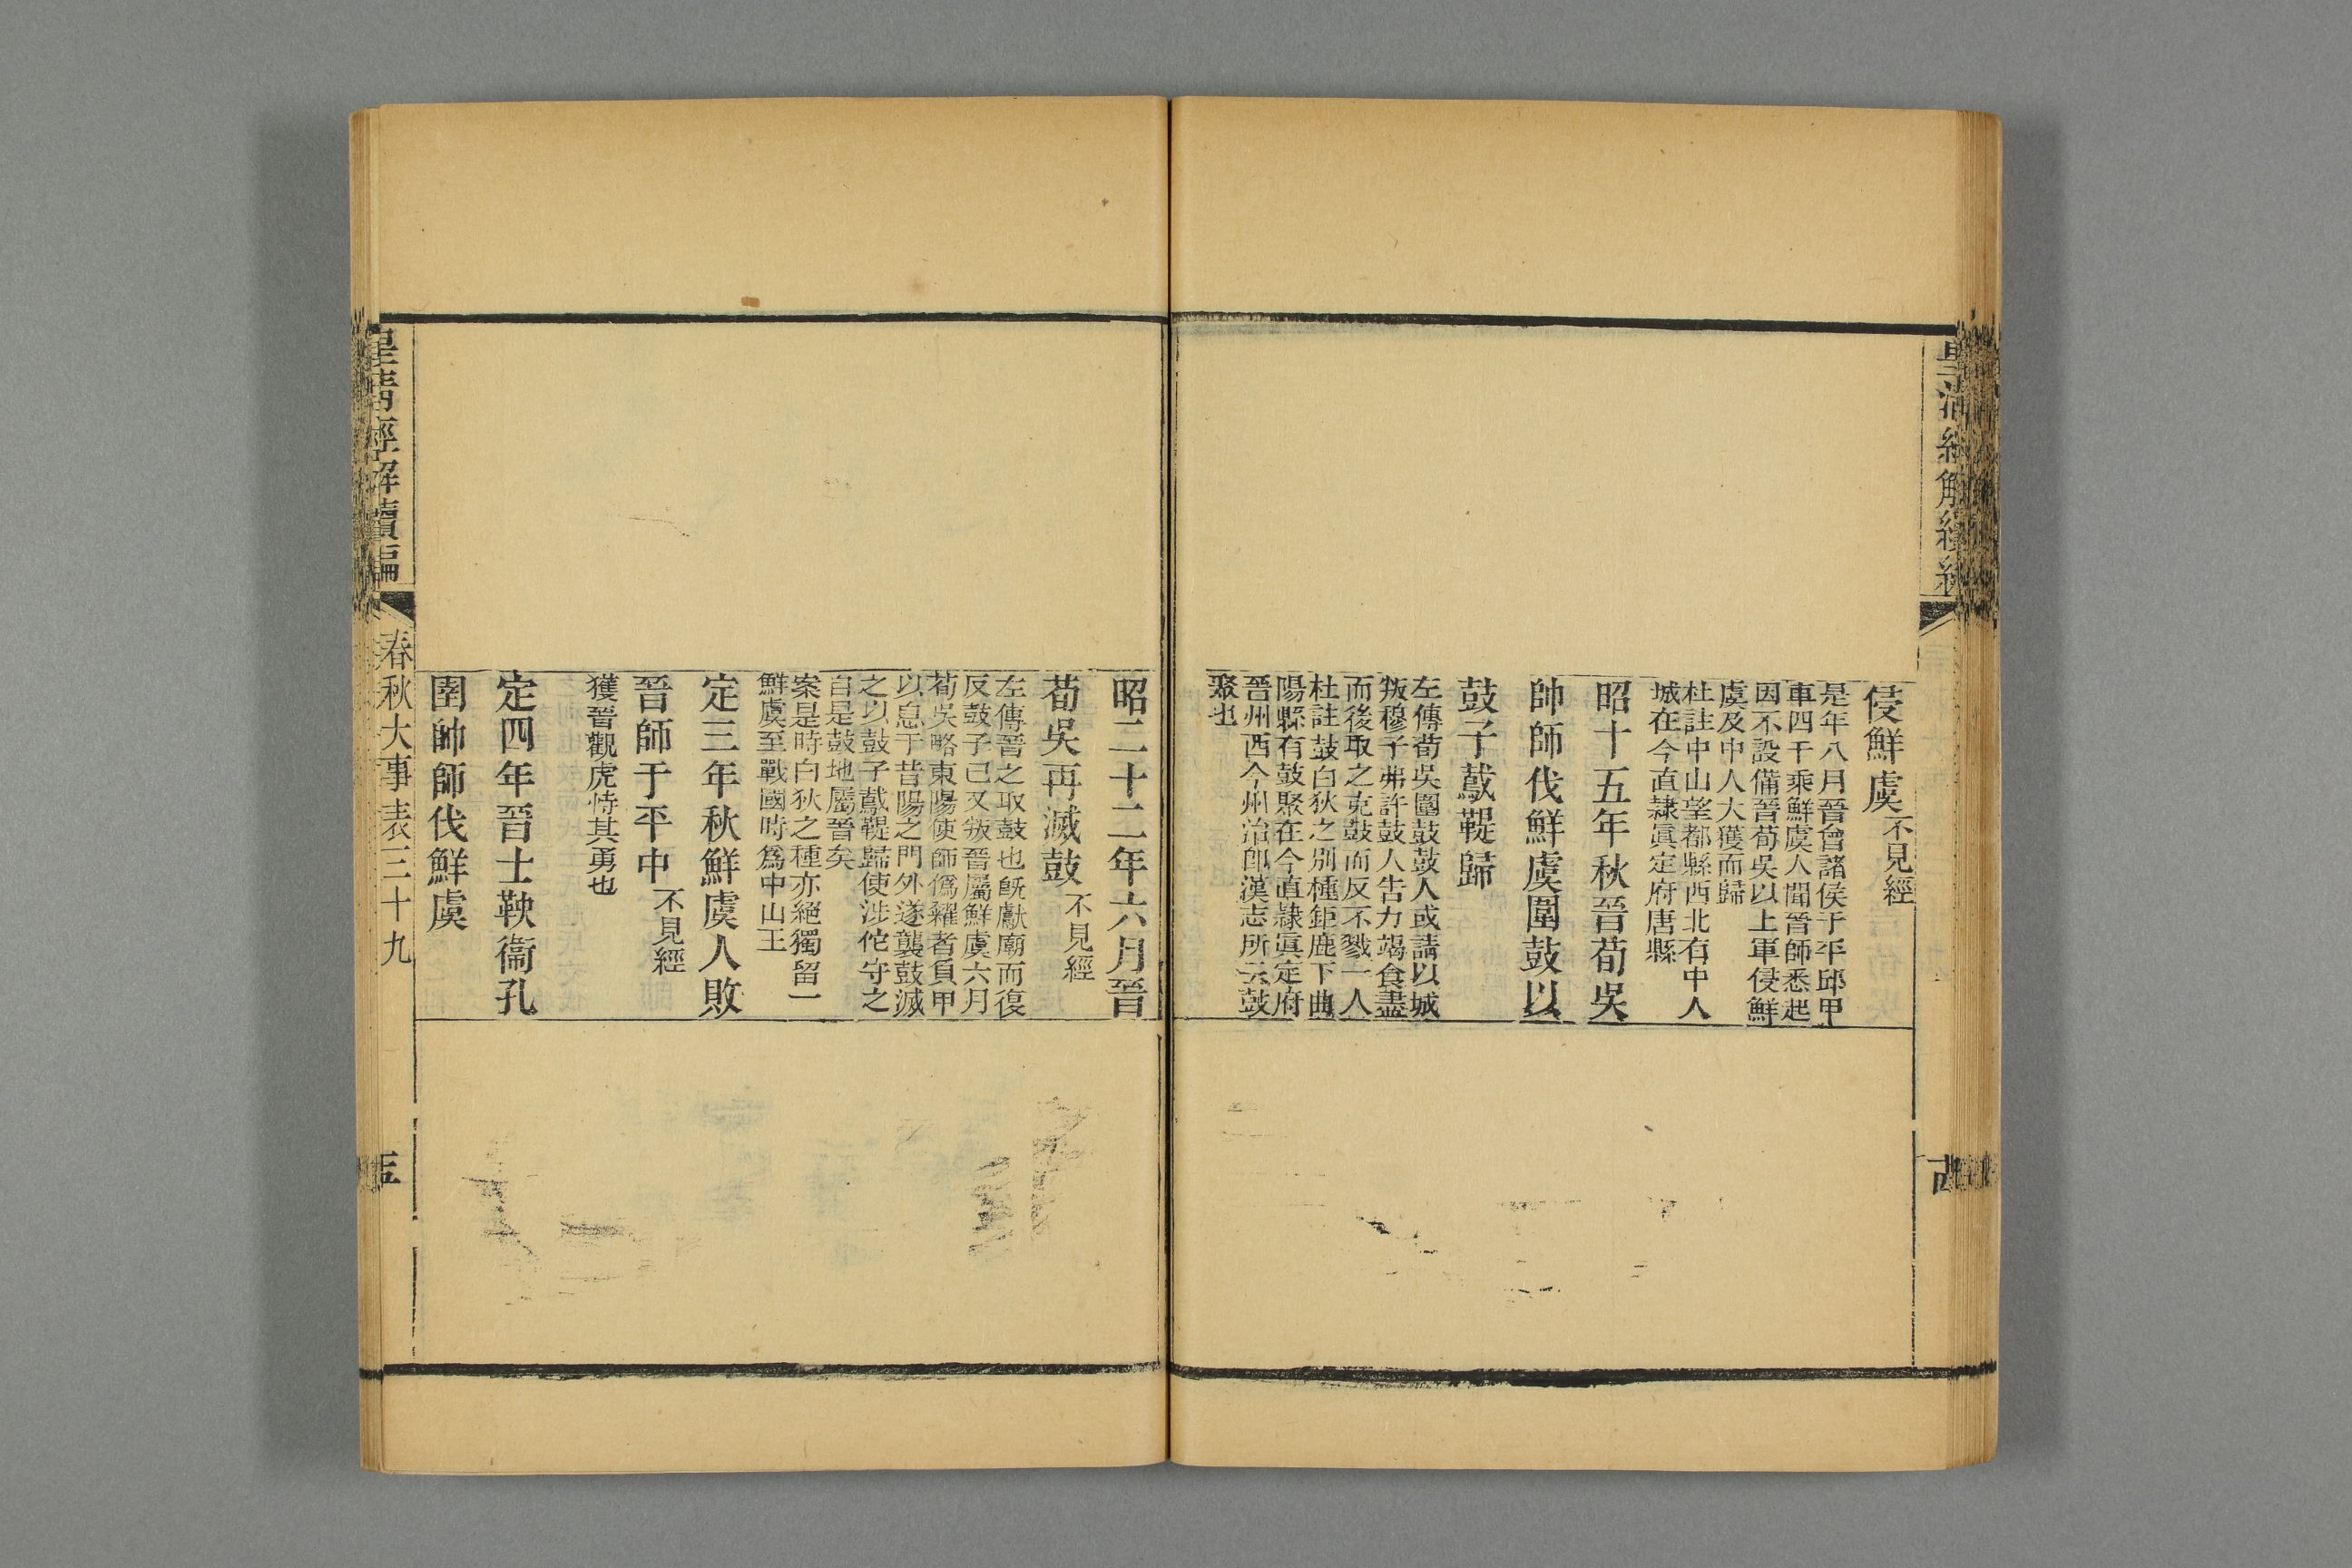 皇清經解續編
侵鮮虞不見經
是年八月晉會諸侯于平邱甲
車四千乘鮮虞人聞晉師悉起
因不設備晉荀吳以上軍侵鮮
虞及中人大獲而歸
杜註中山望都縣西北有中人
城在今直隸眞定府唐縣
昭十五年秋晉荀吳
帥師伐鮮虞圍鼓以
鼓子䳒鞮歸
左傳荀吳圍鼓鼓人或請以城
叛穆子弗許鼓人吿力竭食盡
而後取之克鼓而反不戮一人
杜註鼓白狄之別種鉅鹿下曲
陽縣有鼓聚在今直隸眞定府
晉州西今州治卽漢志所云鼓
聚也
昭二十二年六月晉
荀吳再滅鼓不見經
左傳晉之取鼓也旣獻廟而復
反鼓子已又叛晉屬鮮虞六月
荀吳略東陽使師僞糴者負甲
以息于昔陽之門外遂襲鼓滅
之以鼓子䳒鞮歸使涉佗守之
自是鼓地屬晉矣
案是時白狄之種亦絕獨留一
鮮虞至戰國時爲中山王
定三年秋鮮虞人敗
晉師于平中不見經
獲晉觀虎恃其勇也
定四年晉士鞅衞孔
圉帥師伐鮮虞
皇清經解續編
春秋大事表三十九